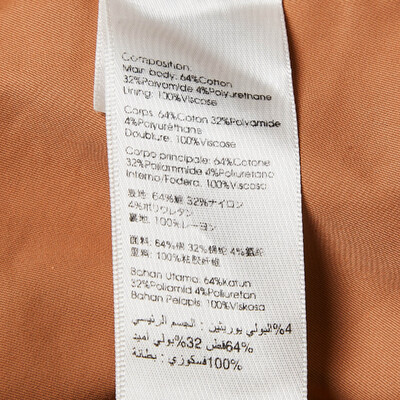 Composition:
Main body: 64%Cotton
32%Polyamide 4%Polyurethane
Lining: 100%Viscose
Corps: 64%Coton 32%Polyamide
4%Polyuréthane
Doublure: 100%Viscose
Corpo principale: 64%Cotone
32%Poliammide 4%Poliuretano
Interno/Fodera: 100%Viscosa
表地: 64%綿 32%ナイロン
4%ポリウレタン
裏地: 100%レーヨン
面料: 64%棉 32%锦纶 4%氨纶
里料: 100%粘胶纤维
Bahan Utama: 64%Katun
32%Poliamid 4%Poliuretan
Bahan Pelapis: 100%Viskosa
4%البولي يوريثين: الجسم الرئيسي
64%قطن 32%بولي أميد
100%فسكوزي: بطانة